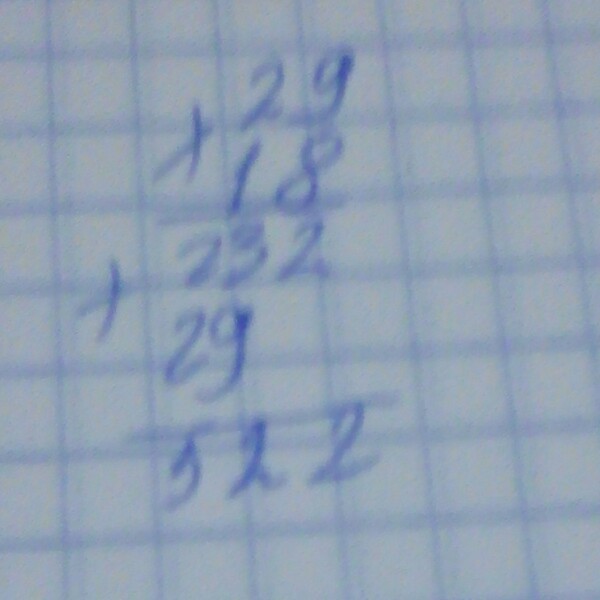 29
+
18
232
+
29
522